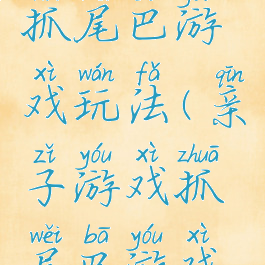 抓尾巴游
xì wán fǎ qīn
戏玩法(亲
zǐ yóu xì zhuā
子游戏抓
wěi bā yóu xì
尾巴游戏